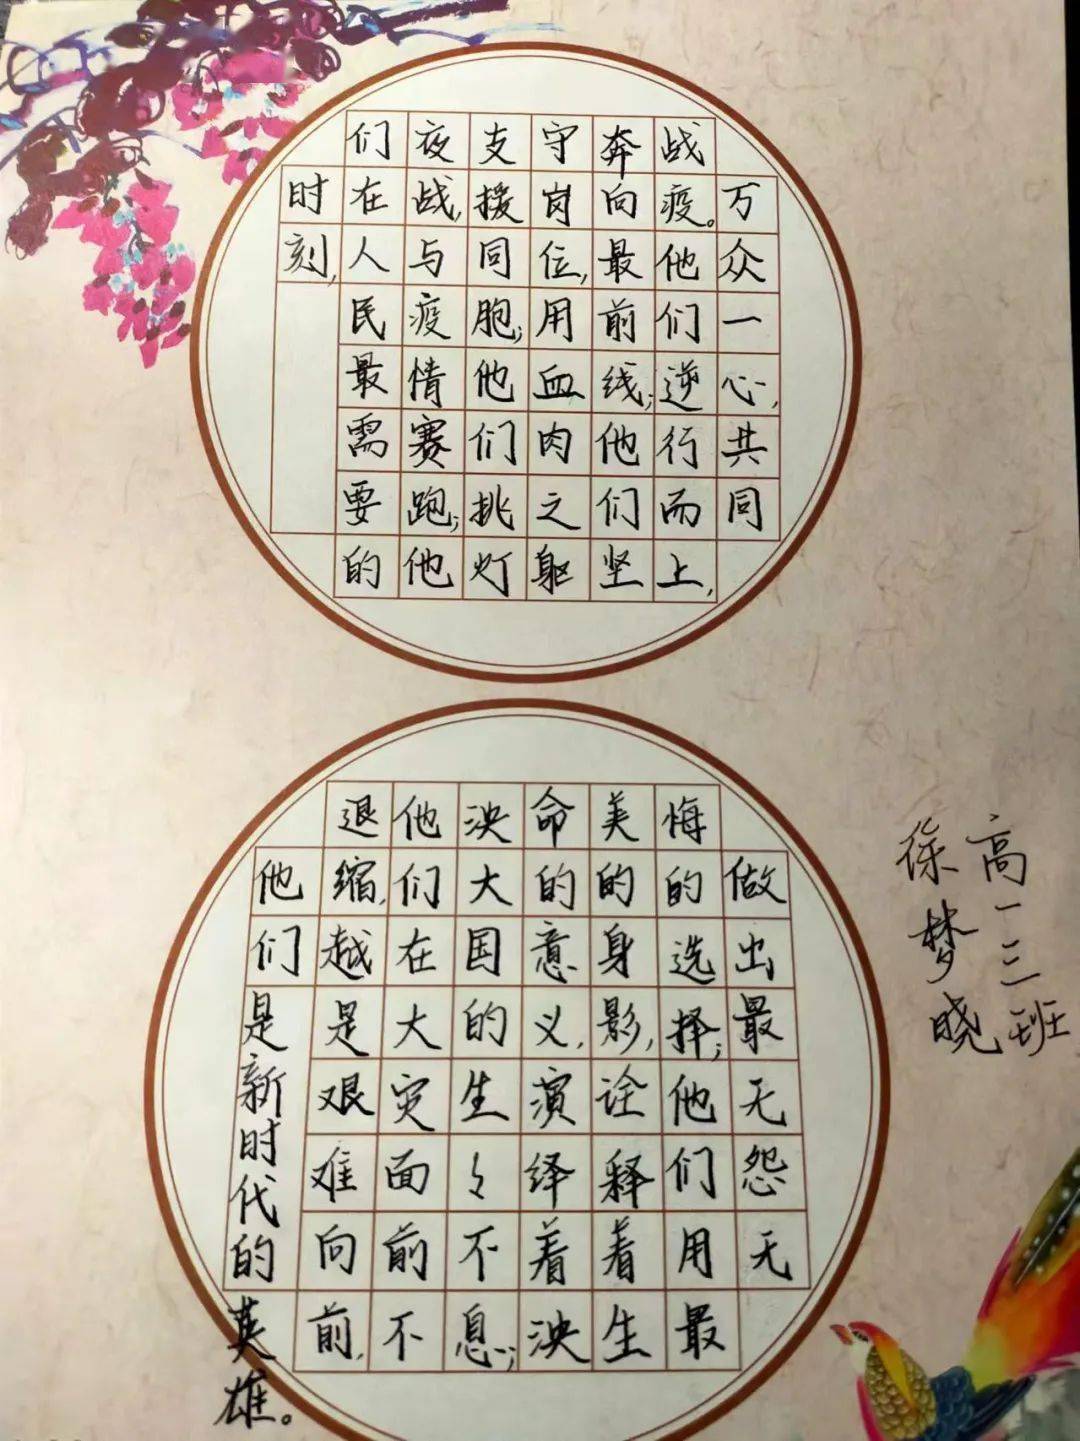 万众一心,共同
战疫。他们逆行而上,
奔向最前线;他们坚
守岗位,用血肉之躯
支援同胞;他们挑灯
夜战,与疫情赛跑;他
们在人民最需要的
时刻,
做出最无怨无
悔的选择;他们用最
美的身影,诠释着生
命的意义,演绎着泱
泱大国的生〻不息;
他们在大灾面前不
退缩,越是艰难向前,
他们是新时代的英雄。
高一三班
徐梦晓